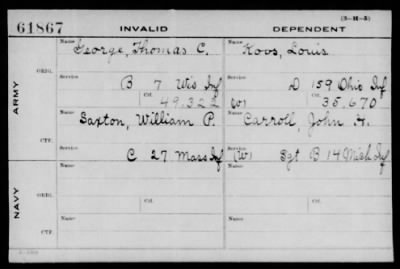 (3-H-3)
61867 INVALID DEPENDENT
Name George, Thomas C. Name Koos, Louis
ORIG.
Service B 7 Wis Inf Service D 159 Ohio Inf
Ctf. 49.322 (W) Ctf. 35.670
ARMY
Name Saxton, William P. Name Carroll, John H.
CTF.
Service C 27 Mass Inf Service (W) Sgt B 14 Mich Inf
Name Name
ORIG.
Service Ctf. Service Ctf.
NAVY
Name Name
CTF.
Service Service